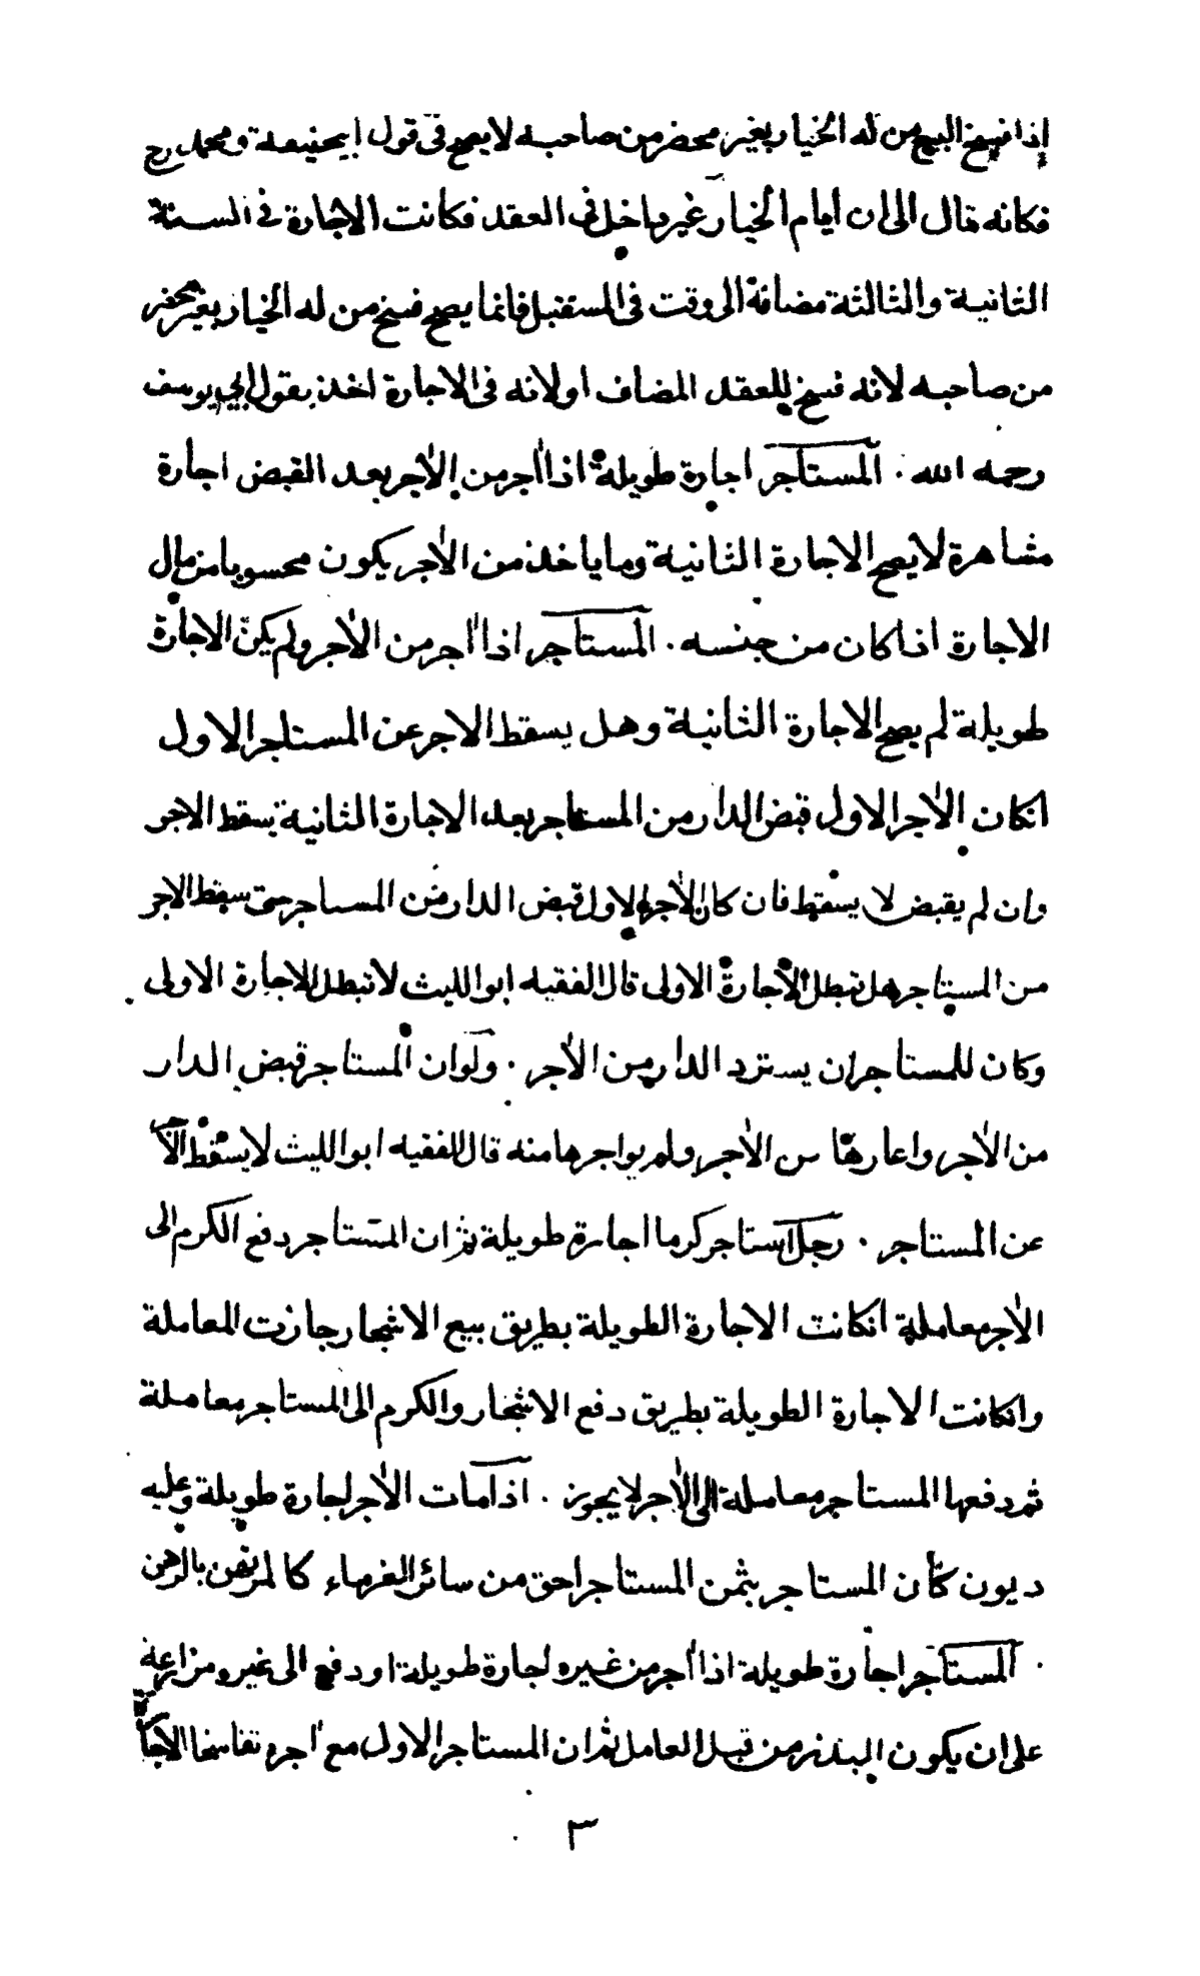 اذا فسخ البيع من له الخيار بغير محضر من صاحبه لا يصح فى قول ابيحنيفة ومحمد رح
فكانه قال الى ان ايام الخيار غير داخل فى العقد فكانت الاجارة فى السنة
الثانية والثالثة مضافة الى وقت فى المستقبل فانما يصح فسخ من له الخيار بغير محضر
من صاحبه لانه فسخ للعقد المضاف او لانه فى الاجارة اخذ بقول ابى يوسف
رحمه الله . المستاجر اجارة طويلة اذا اٰجر من الاٰجر بعد القبض اجارة
مشاهرة لا يصح الاجارة الثانية وما ياخذ من الاٰجر يكون محسوبا من مال
الاجارة اذا كان من جنسه . المستاجر اذا اٰجر من الاٰجر ولم يكن الاجارة
طويلة لم يصح الاجارة الثانية وهل يسقط الاجر عن المستاجر الاول
انكان الاٰجر الاول قبض الدار من المستاجر بعد الاجارة الثانية يسقط الاجر
وان لم يقبض لا يسقط فان كان الاٰجر الاول قبض الدار من المستاجر حتى سقط الاجر
من المستاجر هل تبطل الاجارة الاولى قال الفقيه ابو الليث لا تبطل الاجارة الاولى
وكان للمستاجر ان يسترد الدار من الاٰجر . ولو ان المستاجر قبض الدار
من الاٰجر واعارها من الاٰجر ولم يواجرها منه قال الفقيه ابو الليث لا يسقط الاجر
عن المستاجر . رجل استاجر كرما اجارة طويلة ثم ان المستاجر دفع الكرم الى
الاٰجر معاملة انكانت الاجارة الطويلة بطريق بيع الاشجار جازت المعاملة
وانكانت الاجارة الطويلة بطريق دفع الاشجار والكرم الى المستاجر معاملة
ثم دفعها المستاجر معاملة الى الاٰجر لا يجوز . اذا مات الاٰجر اجارة طويلة وعليه
ديون كان المستاجر بثمن المستاجر احق من سائر الغرماء كالمرتهن بالرهن
. المستاجر اجارة طويلة اذا اٰجر من غيره اجارة طويلة او دفع الى غيره مزارعة
على ان يكون البذر من قبل العامل ثم ان المستاجر الاول مع اٰجره تفاسخا الاجارة
٣